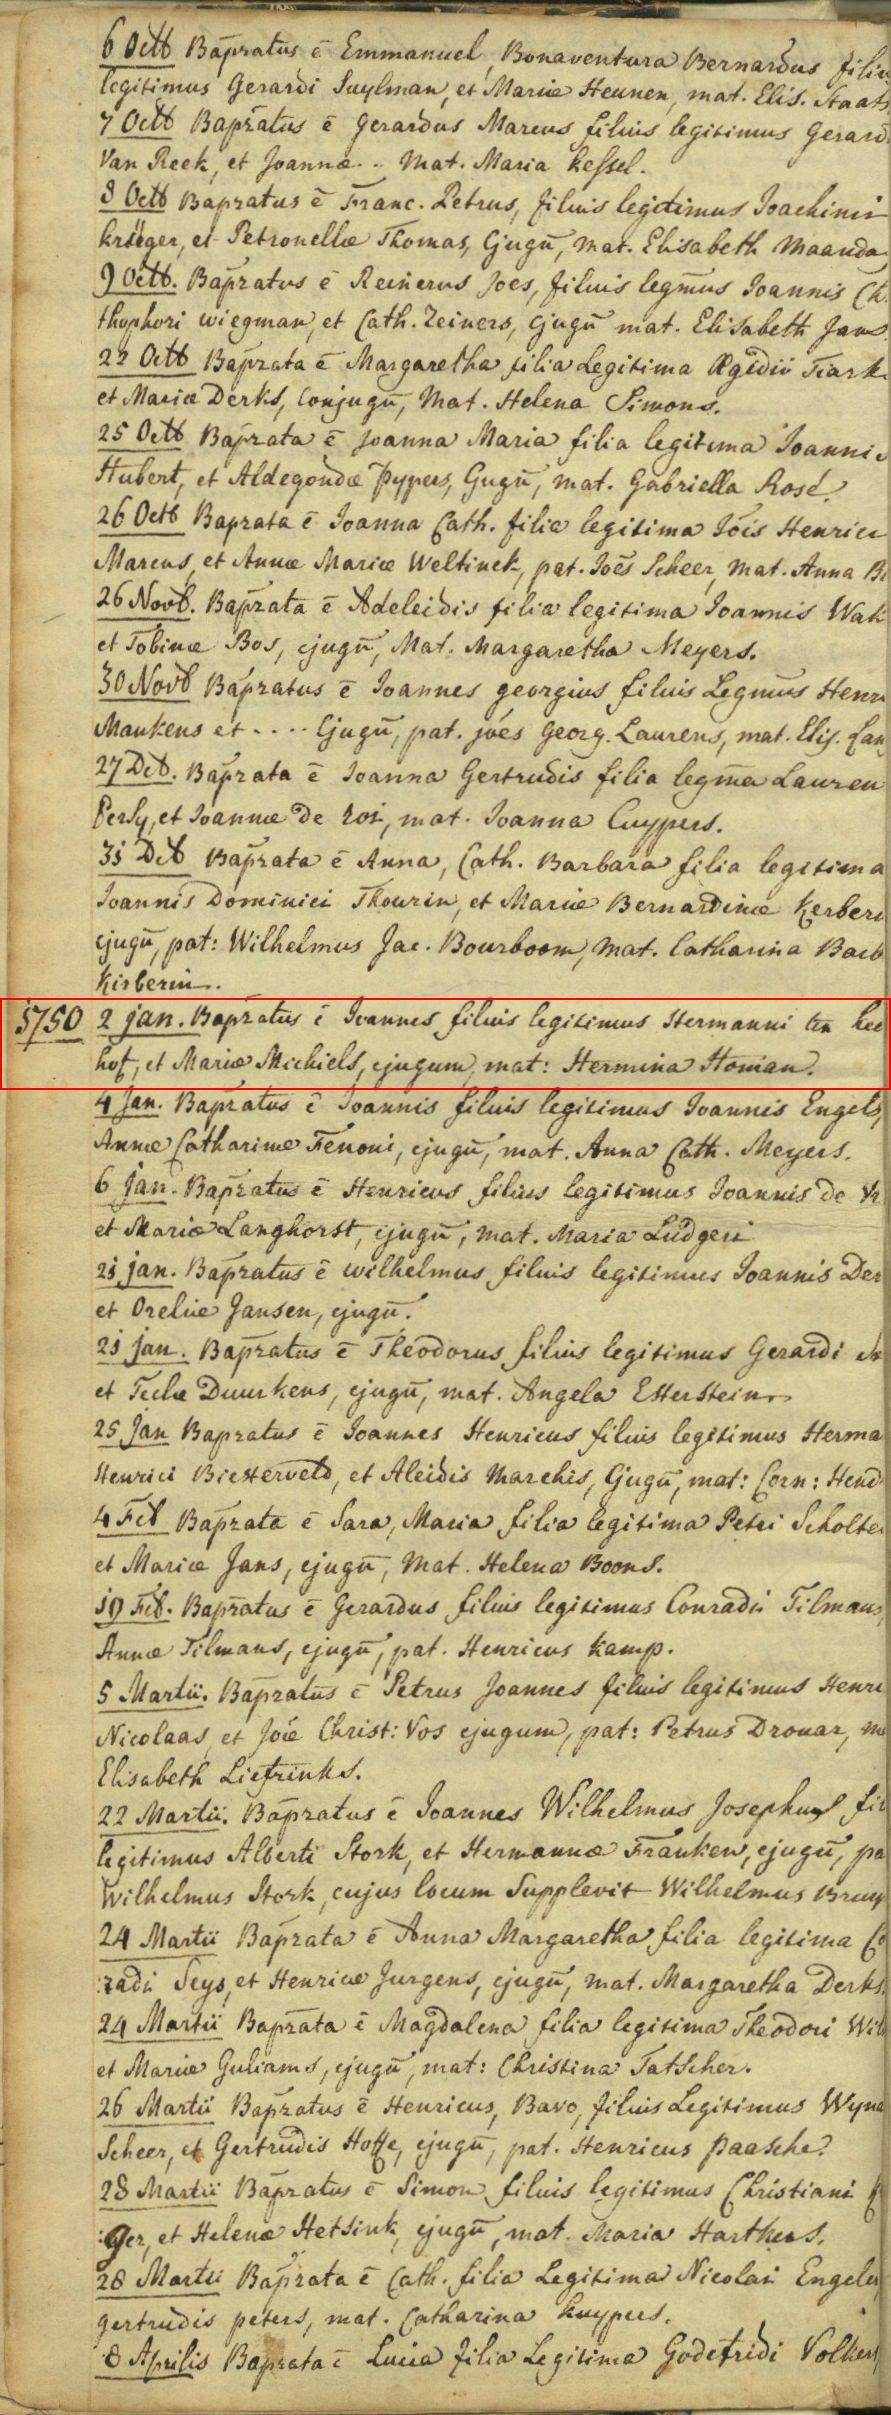 6 Octb Bapzatus ē Emmanuel, Bonaventura Bernardus filiu
legitimus Gerardi Suylman, et Mariæ Heunen, mat. Elis. Staats
7 Octb Bapzatus ē Gerardus Marcus filius legitimus Gerard
Van Reek, et Joannæ .. Mat. Maria Kessel.
8 Octb Bapzatus ē Franc. Petrus, filius legitimus Joachimi
Krüger, et Petronellæ Thomas, Cjugū, Mat. Elisabeth Maanda
9 Octb. Bapzatus ē Reinerus Joes, filius legm̄us Joannis Ch
thophori wiegman, et Cath. Zeiners, cjugū mat. Elisabeth Jans
22 Octb Bapzata ē Margaretha filia Legitima Ægidii Tiark
et Mariæ Derks, Conjugū, Mat. Helena Simons.
25 Octb Bapzata ē Joanna Maria filia legitima Joannis
Hubert, et Aldegondæ Pypers, Cjugū, mat. Gabriella Rosé.
26 Octb Bapzata ē Joanna Cath. filia legitima Jōis Henrici
Marcus, et Annæ Mariæ Weltinck, pat. Joēs Scheer, Mat. Anna
26 Novb. Bapzata ē Adeleidis filia legitima Joannis Wak
et Tobinæ Bos, cjugū, Mat. Margaretha Meyers.
30 Novb Bapzatus ē Joannes georgius filius Legm̄us Henri
Maukens et .... Cjugū, pat. jóes Georg. Laurens, mat. Elis. Lan
27 Dcb. Bapzata ē Joanna Gertrudis filia legm̄a Lauren
Persy, et Joannæ De roi, mat. Joanna Cuypers.
31 Dcb Bapzata ē Anna, Cath. Barbara filia legitima
Joannis Dominici Thourin, et Mariæ Bernardinæ Kerberi
cjugū, pat: Wilhelmus Jac. Bourboom, Mat. Catharina Barb
Kirberin.
1750 2 jan. Bapzatus ē Joannes filius legitimus Hermanni ten hee
hof, et Mariæ Michiels, cjugum, mat: Hermina Homan.
4 Jan. Bapzatus ē Joannis filius legitimus Joannis Engels,
Annæ Catharinæ Fenoni, cjugū, mat. Anna Cath. Meyers.
6 jan. Bapzatus ē Henricus filius legitimus Joannis de Vr
et Mariæ Langhorst, cjugū, mat. Maria Ludgeri
21 jan. Bapzatus ē wilhelmus filius legitimus Joannis Der
et Oreliæ Jansen, cjugū.
21 jan. Bapzatus ē Theodorus filius legitimus Gerardi
et Teclæ Duurkens, cjugū, mat. Angela Esterstein
25 Jan Bapzatus ē Joannes Henricus filius legitimus Herma
Henrici Biesterveld, et Aleidis Marchis, Cjugū, mat: Corn: Hend
4 Feb Bapzata ē Sara, Maria filia legitima Petri Scholte
et Mariæ Jans, cjugū, Mat. Helena Boons.
19 Feb. Bapzatus ē Gerardus filius legitimus Conradii Tilmans,
Annæ Tilmans, cjugū, pat. Henricus Kamp.
5 Martii. Bapzatus ē Petrus Joannes filius legitimus Henri
Nicolaas, et Joīe Christ: Vos cjugum, pat: Petrus Drouar, m
Elisabeth Liefrinks.
22 Martii. Bapzatus ē Joannes Wilhelmus Josephus fil
legitimus Alberti Stork, et Hermannæ Franken, cjugū, pa
Wilhelmus Stork, cujus locum Supplevit Wilhelmus Bruy
24 Martii Bapzata ē Anna Margaretha filia legitima Co
radi Seys, et Henricæ Jurgens, cjugū, mat. Margaretha Derks.
24 Martii Bapzata ē Magdalena filia legitima Theodori Wil
et Mariæ Guliams, cjugū, mat: Christina Tatscher.
26 Martii Bapzatus ē Henricus, Bavo, filius Legitimus Wyna
Scheer, et Gertrudis Hoffe, cjugū, pat. Henricus Paasche.
28 Martii Bapzatus ē Simon filius legitimus Christiani
ger, et Helenæ Hetsink, cjugū, mat. Maria Harthers.
28 Martii Bapzata ē Cath. filia Legitima Nicolai Engele
gertrudis peters, mat. Catharina Kuypers.
8 Aprilis Bapzata ē Lucia filia Legitima Godefridi Volkers